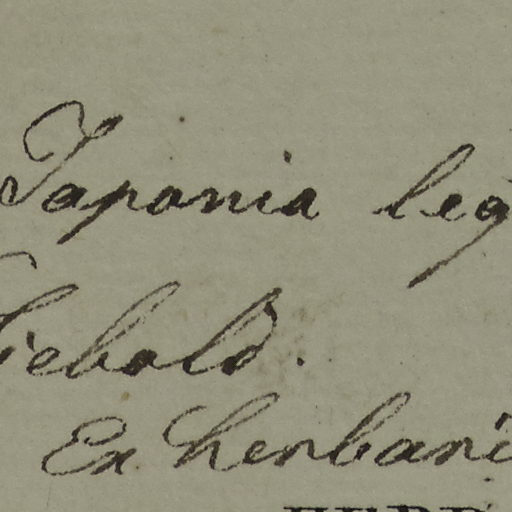 Japonia leg
Siebold.
Ex herbari